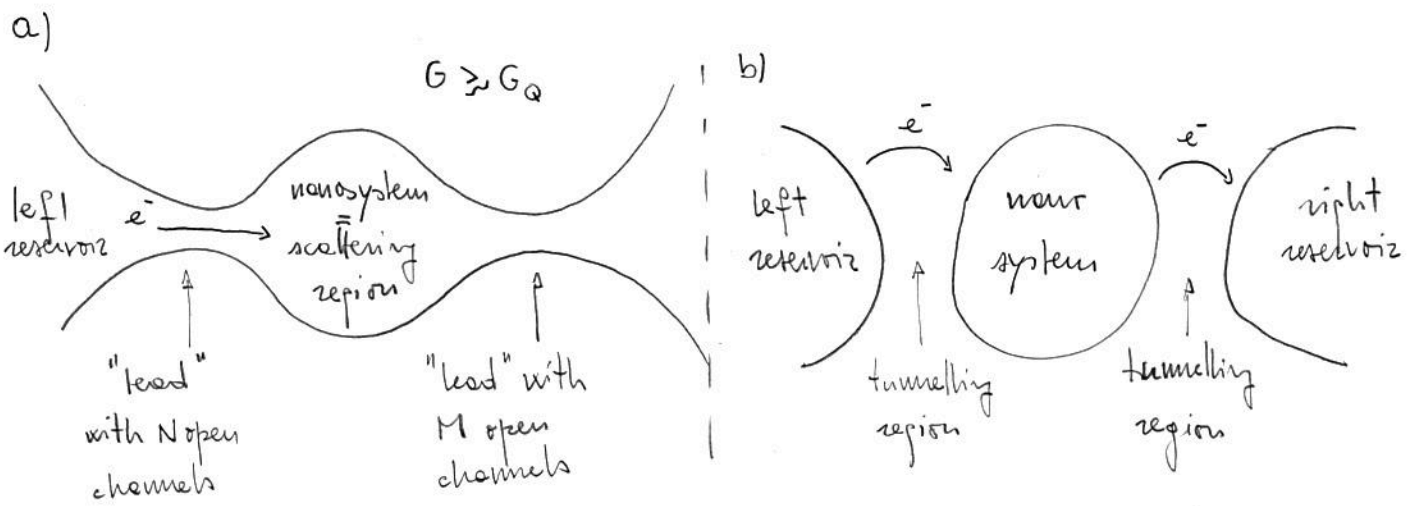 a)
G ≳ G_Q
left
reservoir
e⁻
nanosystem
=
scattering
region
"lead"
with N open
channels
"lead" with
M open
channels
b)
e⁻
e⁻
left
reservoir
nano
system
right
reservoir
tunnelling
region
tunnelling
region